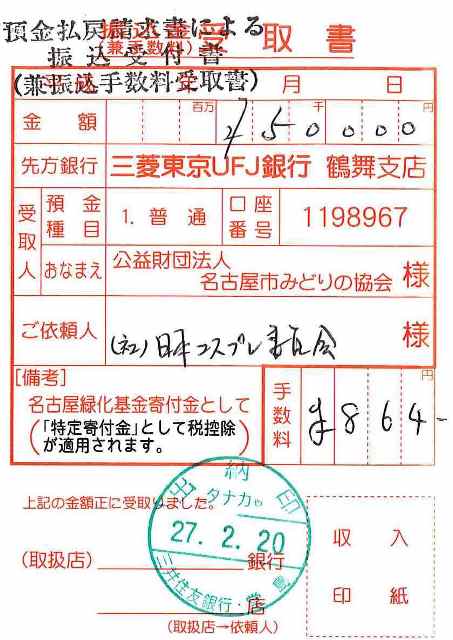 預金払戻請求書による
振込受付書
(兼振込手数料受取書)
振込金受取書
(兼手数料)
年 月 日
金額 百万 千 円
¥750000
先方銀行 三菱東京UFJ銀行 鶴舞支店
受取人 預金種目 1. 普通 口座番号 1198967
おなまえ 公益財団法人
名古屋市みどりの協会 様
ご依頼人 (社)日本コスプレ委員会 様
[備考]
名古屋緑化基金寄付金として
(「特定寄付金」として税控除
が適用されます。)
手数料 円
¥864-
上記の金額正に受取りました。
出納印
タナカや
27.2.20
三井住友銀行
(取扱店) 銀行
店
収入
印紙
(取扱店→依頼人)